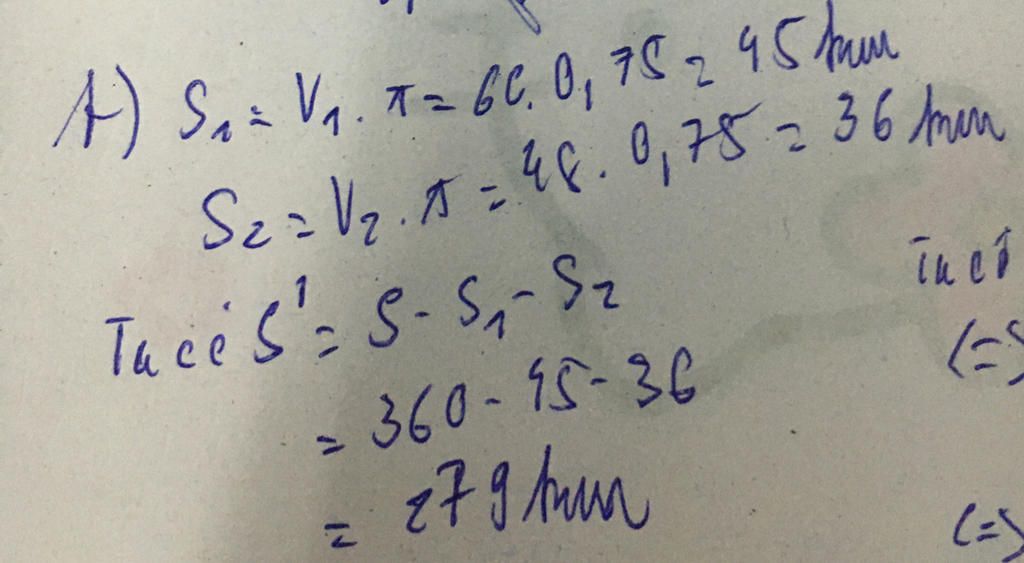 A) S₁ = V₁ . t = 60 . 0,75 = 45 km
S₂ = V₂ . t = 48 . 0,75 = 36 km
Ta có S' = S - S₁ - S₂
= 360 - 45 - 36
= 279 km
Ta có
(=>
(=>